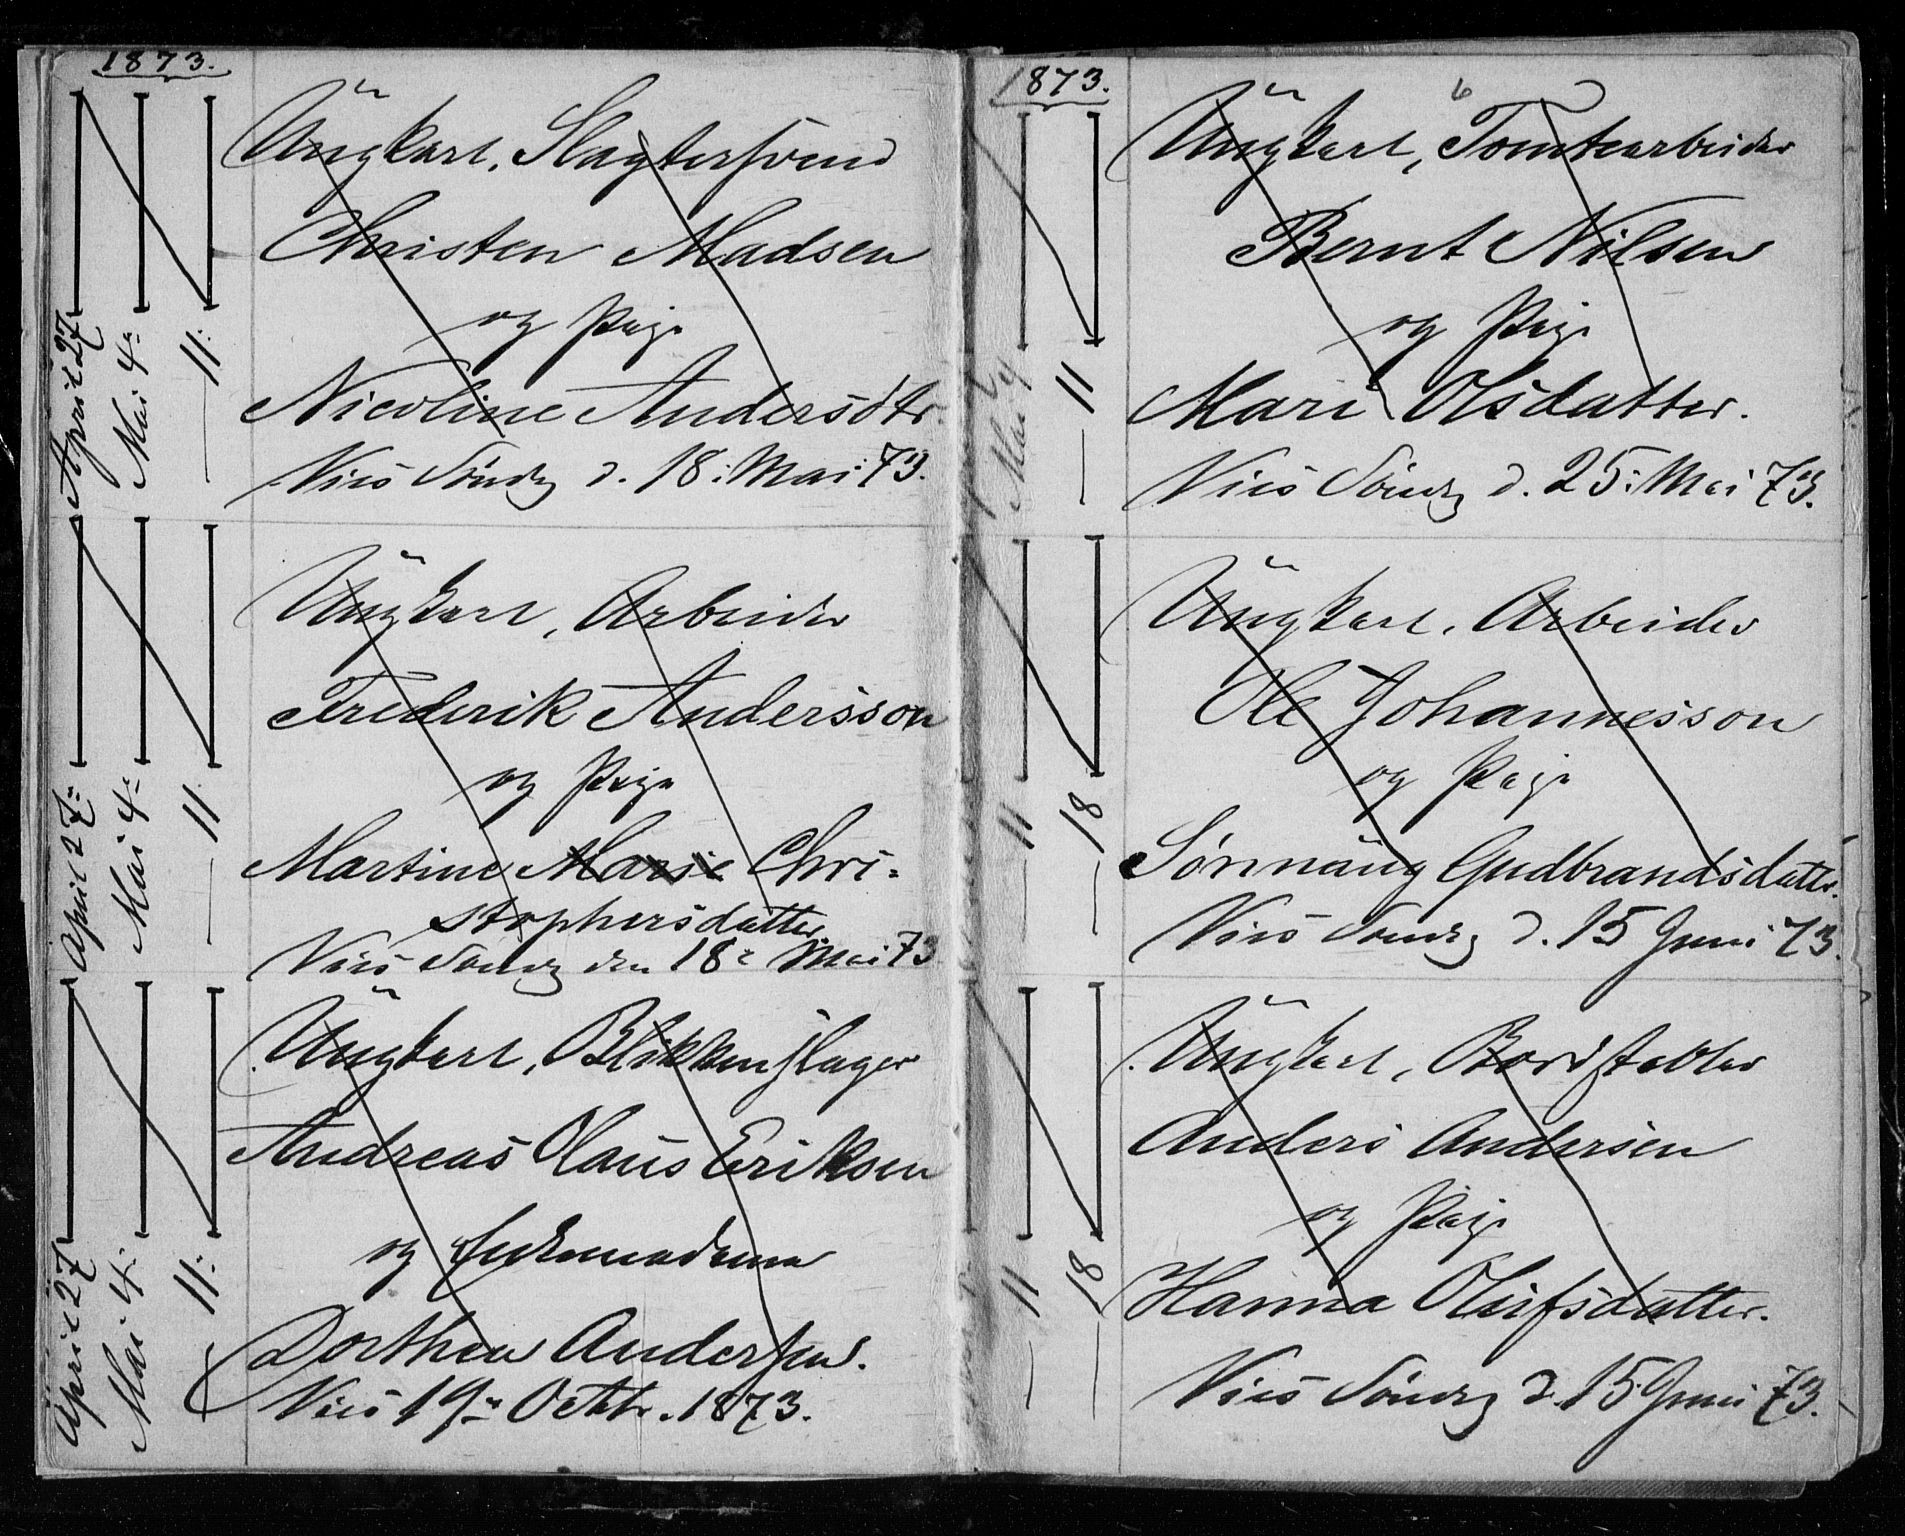 1873.
April 27
Mai 4:
11:
Ungkarl, Slagtersvend
Christen Madsen
og Pige
Nicoline Andersdtr.
Vies Søndg d. 18: Mai 73.
April 27:
Mai 4:
11
Ungkarl, Arbeider
Frederik Andersson
og Pige
Martine Marie Chri-
stophersdatter.
Vies Søndg den 18: Mai 73
April 27
Mai 4:
11:
Ungkarl, Blikkenslager
Andreas Olaus Eriksen
og Enkemadame
Dorthea Andersen.
Vies 19: Octbr. 1873.
1873.
6
Mai 4
11
Ungkarl, Tomtearbeider
Bernt Nilsen
og Pige
Mari Olsdatter.
Vies Søndg d. 25: Mai 73.
11
18
Ungkarl, Arbeider
Ole Johannesson
og Pige
Sønnäug Gudbrandsdatter.
Vies Søndg d. 15 Juni 73.
11
18
Ungkarl, Bordstabler
Anders Andersen
og Pige
Hanna Olufsdatter.
Vies Søndg d. 15 Juni 73.